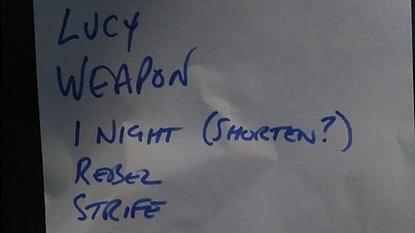 LUCY
WEAPON
1 NIGHT (SHORTEN?)
REBEL
STRIFE